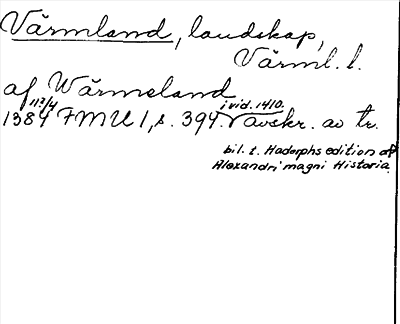 Värmland, landskap,
Värml. l.
af Wärmeland
13/4 i vid. 1410.
1384 FMU 1, s. 394. √ avskr. av tr.
bil. t. Hadorphs edition af
Alexandri magni Historia